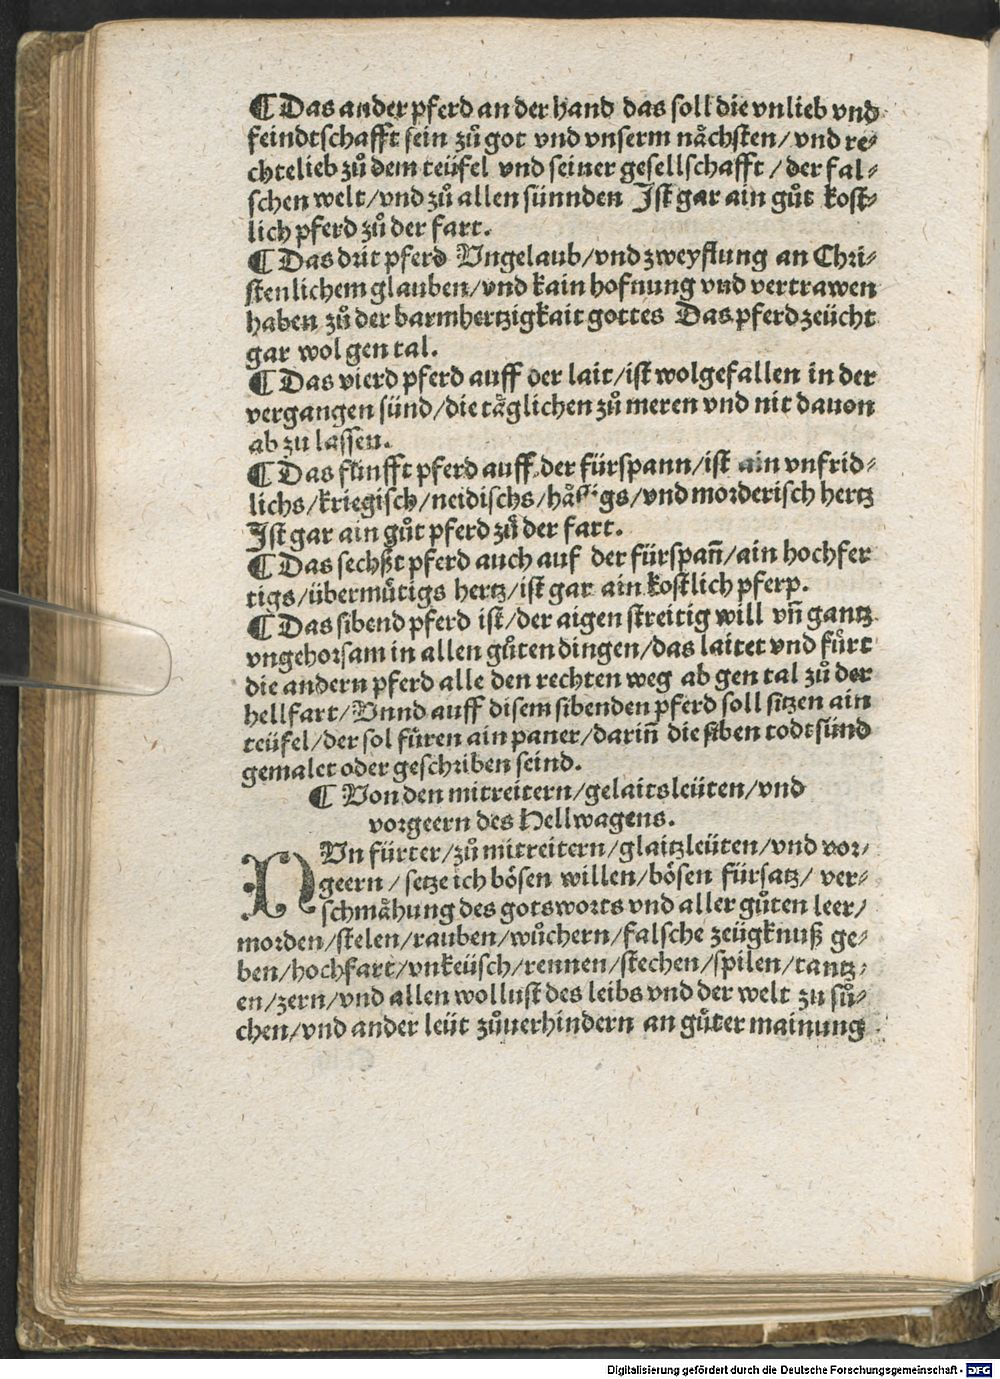 ¶ Das ander pferd an der hand das soll die vnlieb vnd
feindtschafft sein zů got vnd vnserm nåchsten/ vnd re⸗
chte lieb zů dem teüfel vnd seiner gesellschafft / der fal⸗
schen welt/vnd zů allen sünnden Jst gar ain gůt kost⸗
lich pferd zů der fart.
¶ Das drit pferd Vngelaub/vnd zweyflung an Chri⸗
stenlichem glauben/vnd kain hofnung vnd vertrawen
haben zů der barmhertzigkait gottes Das pferd zeücht
gar wol gen tal.
¶ Das vierd pferd auff der lait/ist wolgefallen in der
vergangen sünd/die tåglichen zů meren vnd nit dauon
ab zu lassen.
¶ Das fünfft pferd auff der fürspann/ist ain vnfrid⸗
lichs/kriegisch/neidischs/ vnd morderisch hertz
Jst gar ain gůt pferd zů der fart.
¶ Das sechßt pferd auch auf der fürspañ/ain hochfer
tigs/übermůtigs hertz/ist gar ain kostlich pferp.
¶ Das sibend pferd ist/der aigen streitig will vñ gantz
vngehorsam in allen gůten dingen/das laitet vnd fůrt
die andern pferd alle den rechten weg ab gen tal zů der
hellfart/Vnnd auff disem sibenden pferd soll sitzen ain
teüfel/der sol fůren ain paner/dariñ die siben todtsünd
gemalet oder geschriben seind.
¶ Von den mitreitern/gelaitsleüten/vnd
vorgeern des Hellwagens.
NVn fürter/zů mitreitern/glaitzleüten/vnd vor⸗
geern / setze ich bösen willen/bösen fürsatz/ ver⸗
schmåhung des gotsworts vnd aller gůten leer/
morden/stelen/rauben/wůchern/falsche zeügknuß ge⸗
ben/hochfart/vnkeüsch/rennen/stechen/spilen/tantz⸗
en/zern/vnd allen wollust des leibs vnd der welt zu sů⸗
chen/vnd ander leüt zůuerhindern an gůter mainung
Digitalisierung gefördert durch die Deutsche Forschungsgemeinschaft - DFG